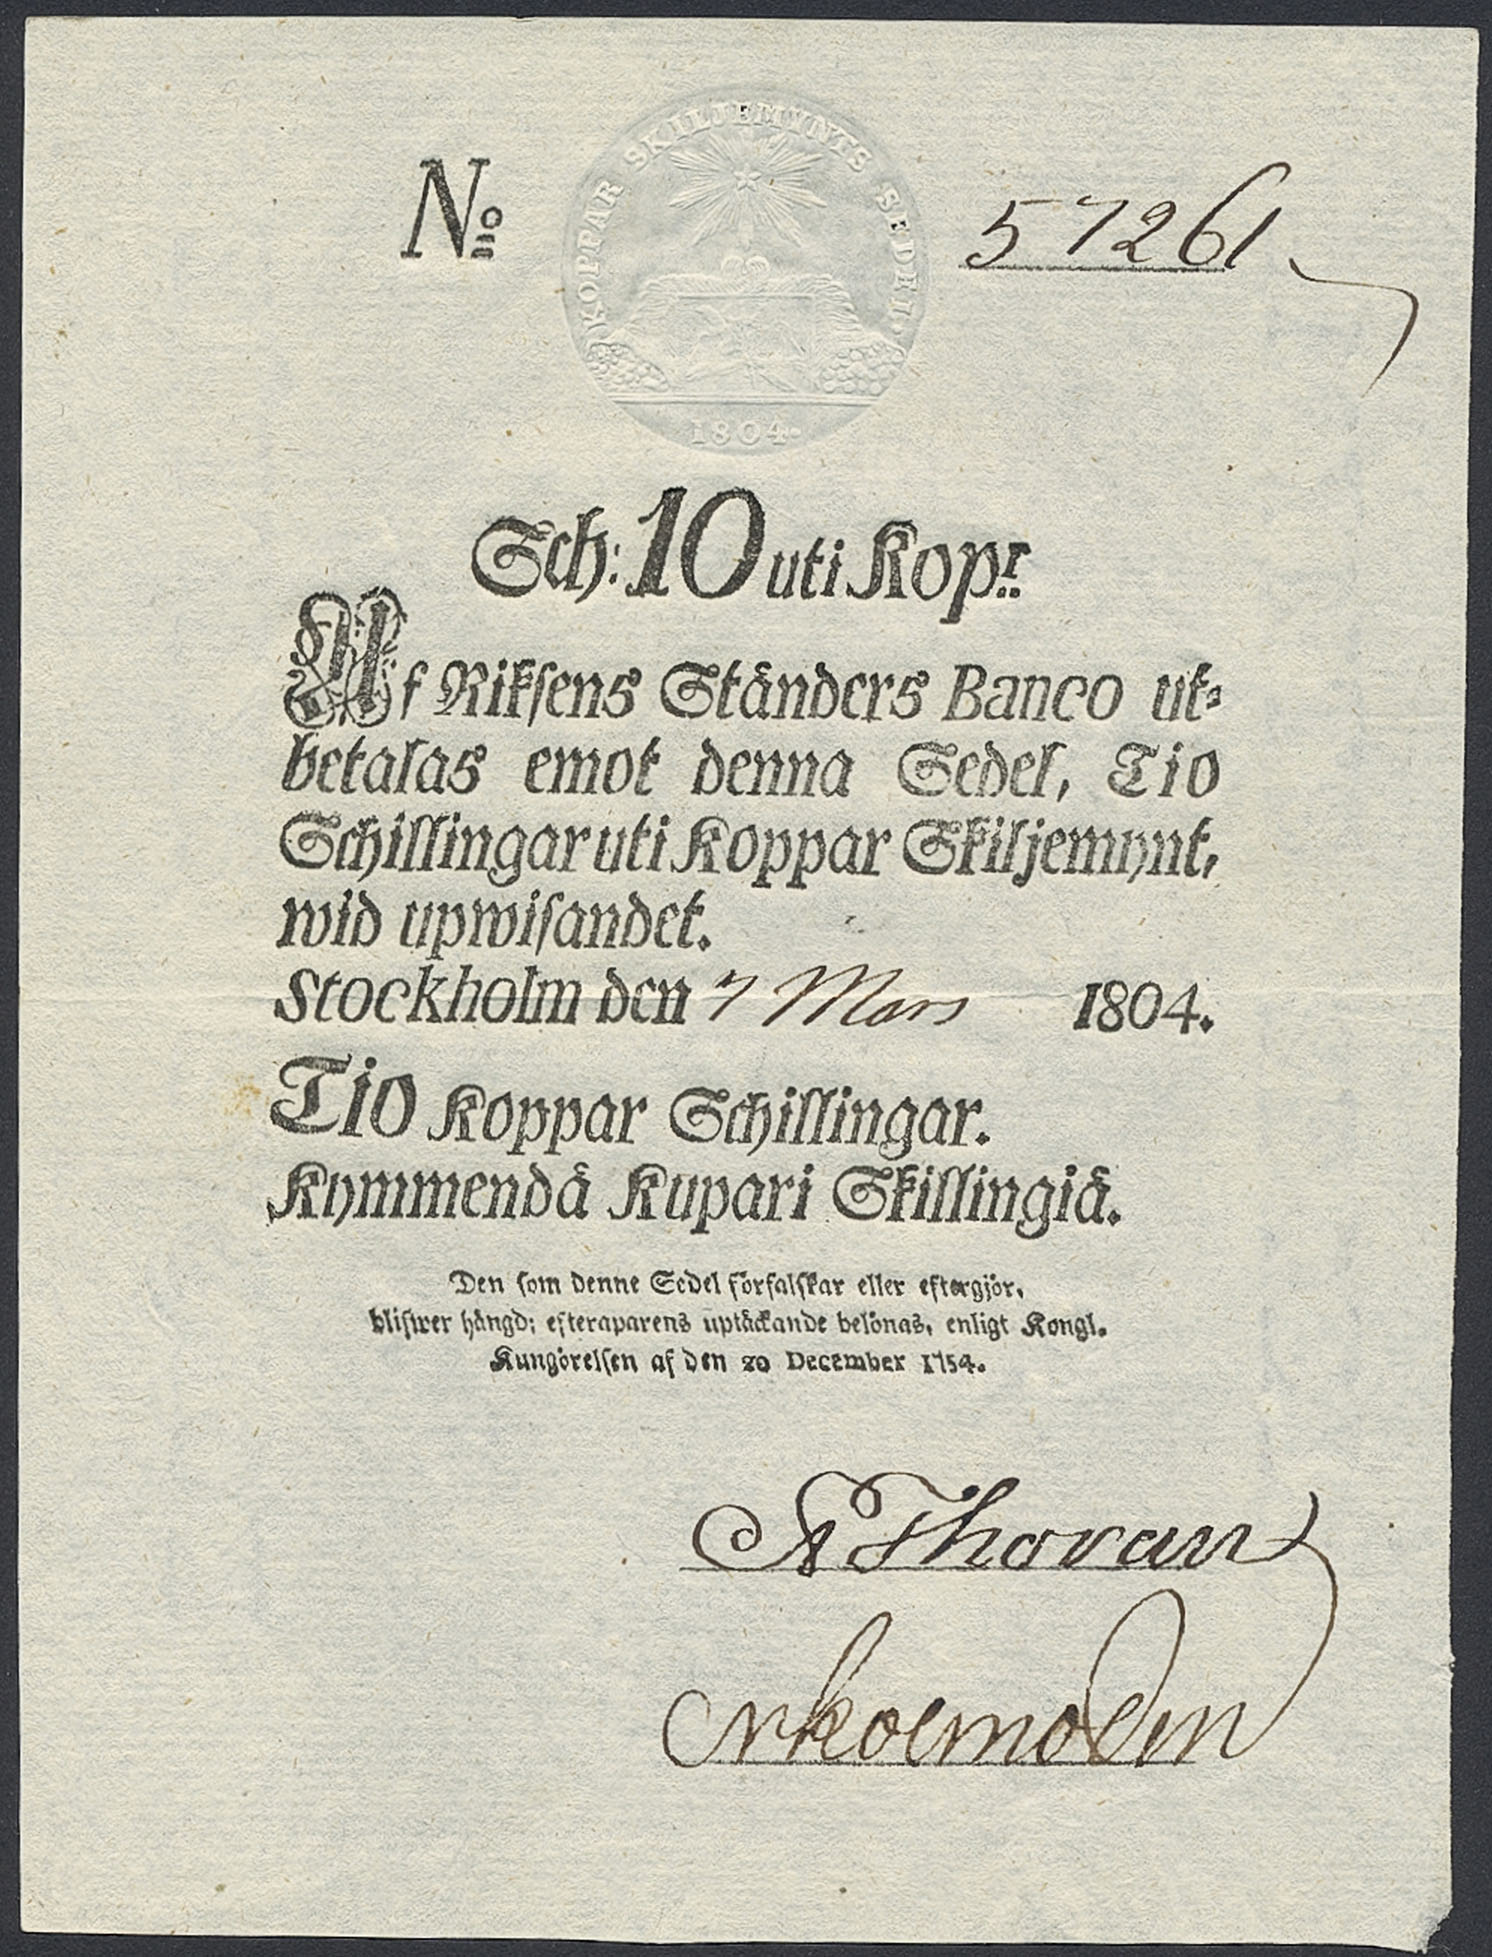 KOPPAR SKILJEMYNTS SEDEL.
1804.
No 57261
Sch: 10 uti Kopr.
Af Rikſens Ständers Banco ut-
betalas emot denna Sedel, Tio
Schillingar uti Koppar Skiljemynt,
wid upwiſandet.
Stockholm den 7 Mars 1804.
Tio Koppar Schillingar.
Kymmendä Kupari Skillingiä.
Den ſom denne Sedel förfalſkar eller eftergjör,
blifwer hängd; efteraparens uptäckande belönas, enligt Kongl.
Kungörelſen af den 20 December 1754.
A Thoran